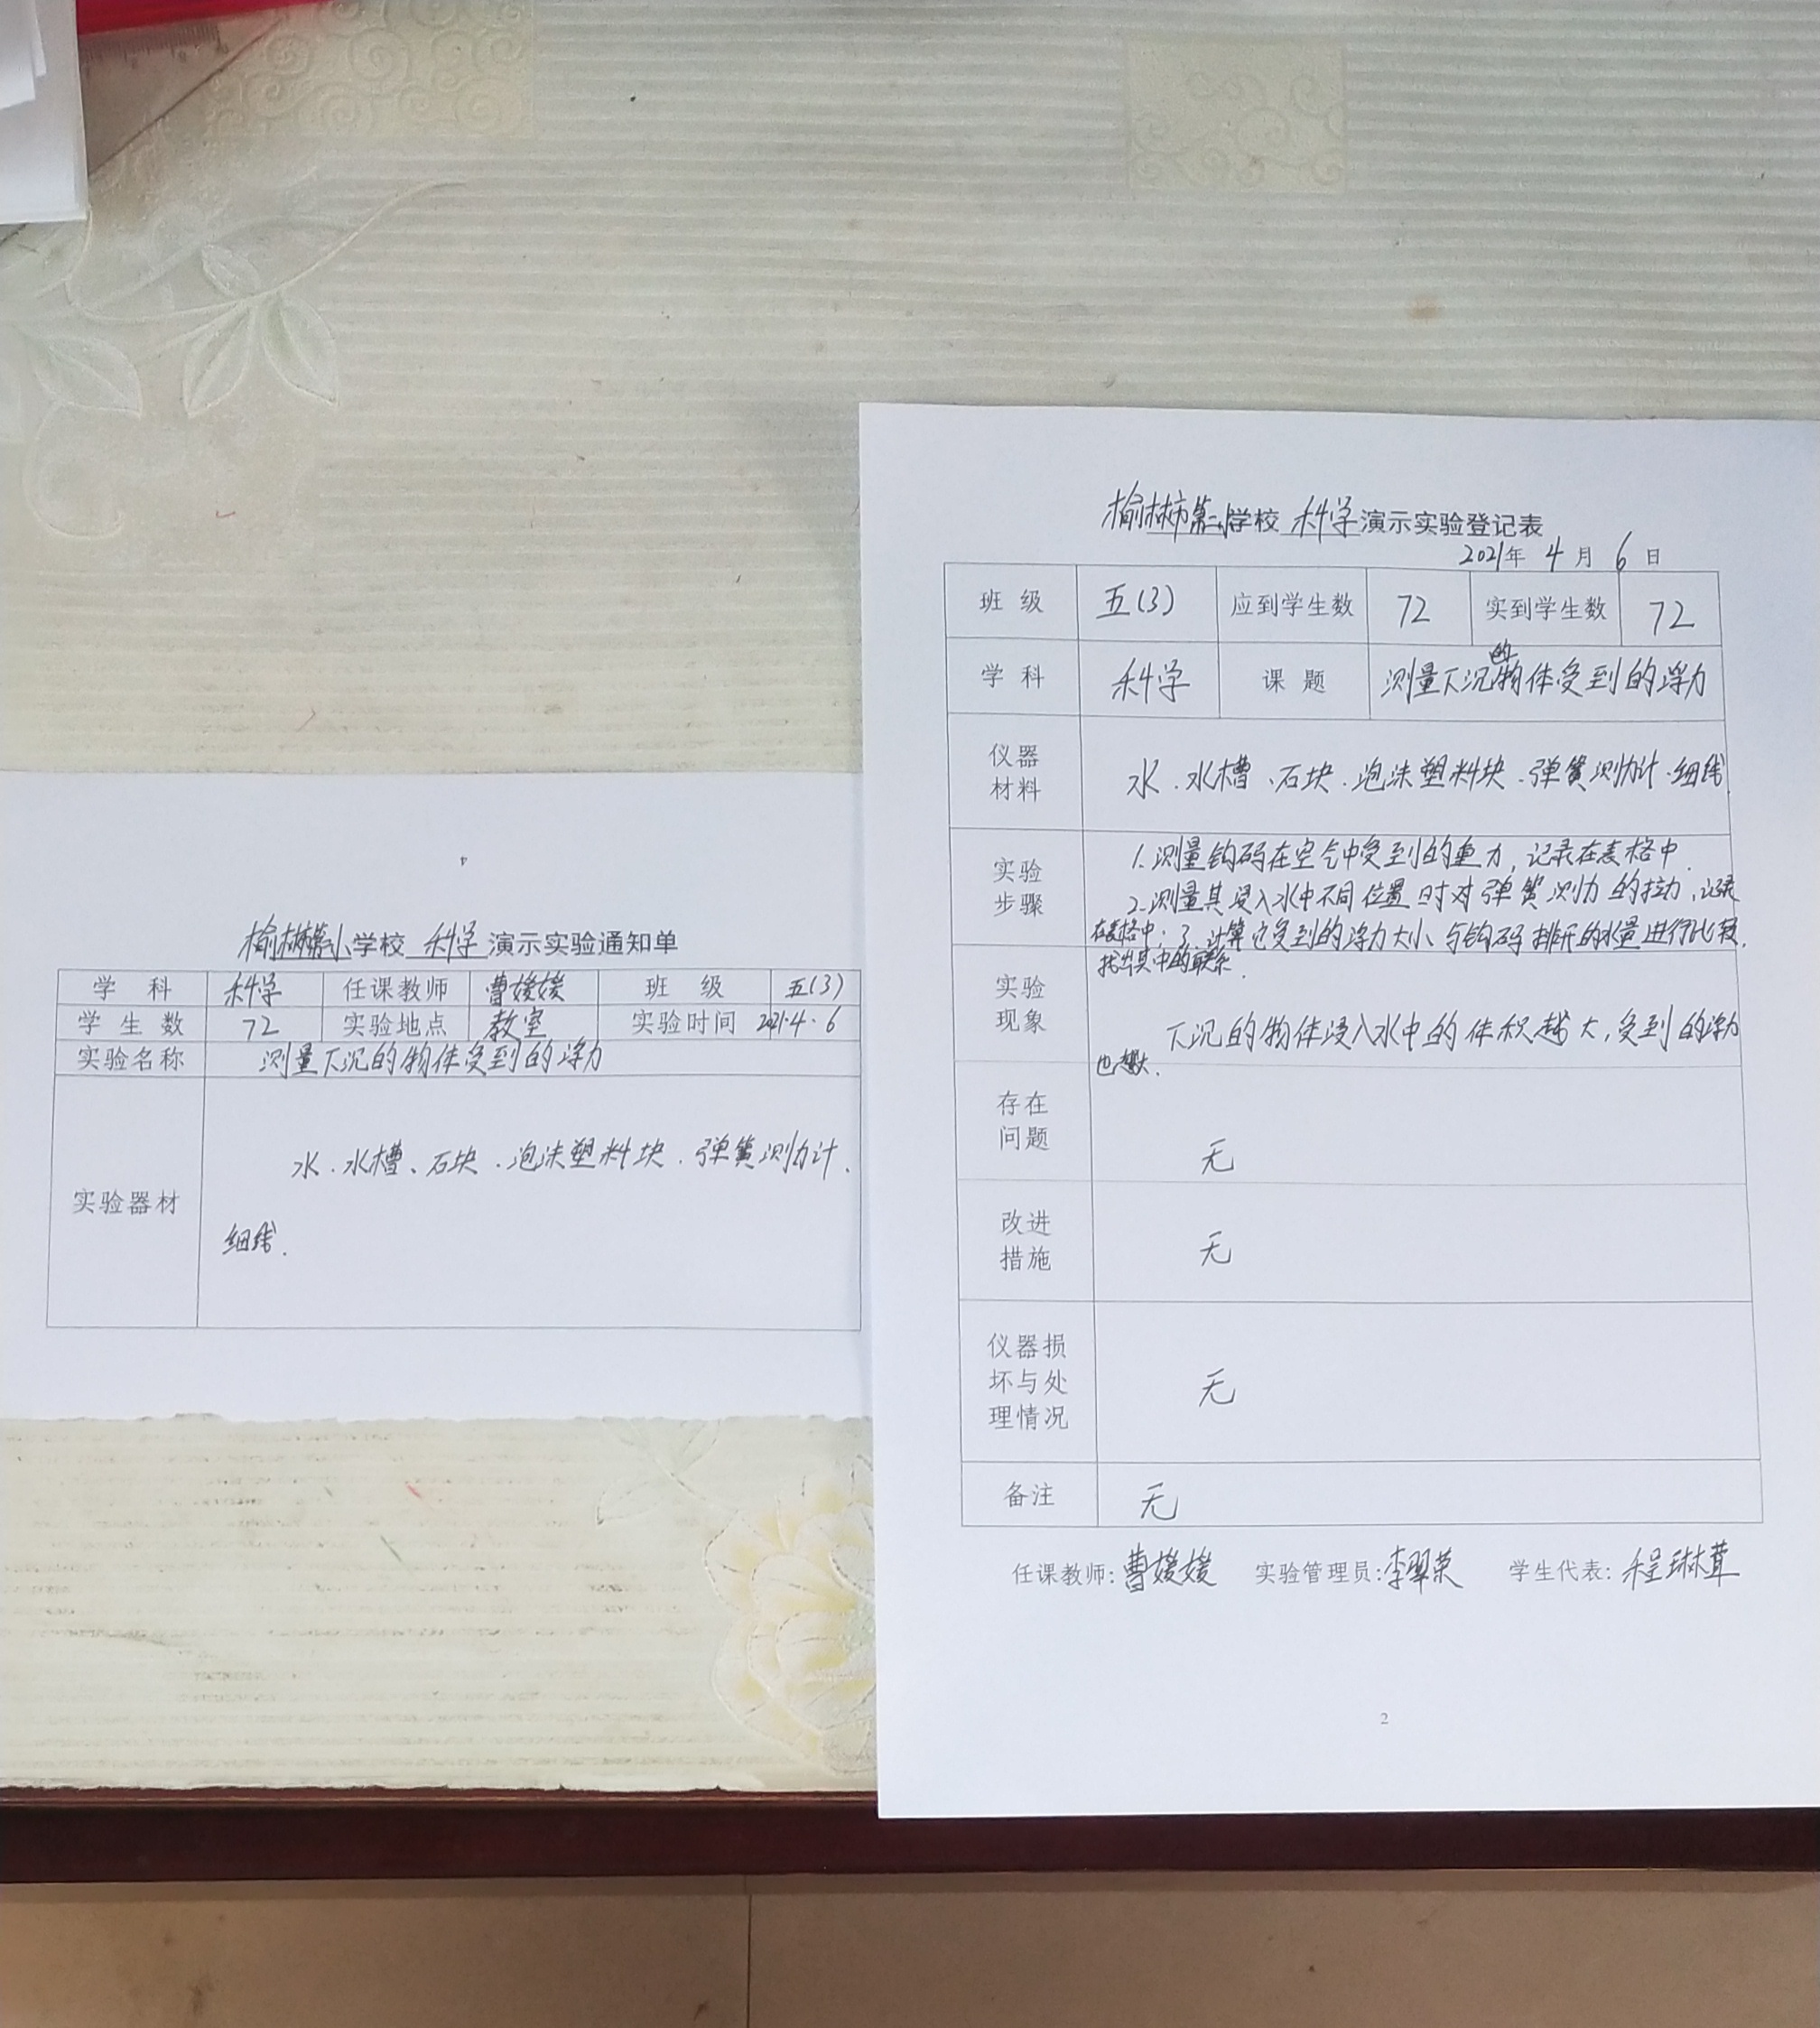 榆林市第二小学校 科学 演示实验登记表
2021年 4 月 6 日
班 级 五(3) 应到学生数 72 实到学生数 72
学 科 科学 课 题 测量下沉的物体受到的浮力
仪器
材料
水、水槽、石块、泡沫塑料块、弹簧测力计、细线
实验
步骤
1.测量钩码在空气中受到的重力,记录在表格中.
2.测量其浸入水中不同位置时对弹簧测力的拉力,记录
在表格中;3.计算它受到的浮力大小与钩码排开的水量进行比较,
找出其中的联系.
实验
现象
下沉的物体浸入水中的体积越大,受到的浮力
也越大.
存在
问题
无
改进
措施
无
仪器损
坏与处
理情况
无
备注 无
任课教师:曹媛媛 实验管理员:李翠荣 学生代表:程琳茸
2
4
学校 科学 演示实验通知单
学 科 科学 任课教师 曹媛媛 班 级 五(3)
学 生 数 72 实验地点 教室 实验时间 2021.4.6
实验名称 测量下沉的物体受到的浮力
实验器材
水、水槽、石块、泡沫塑料块、弹簧测力计、
细线.